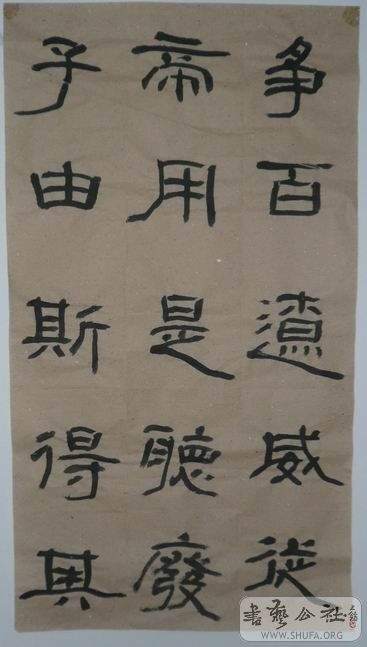 争百遼咸從
帝用是聽廢
子由斯得其
書藝公社
WWW.SHUFA.ORG